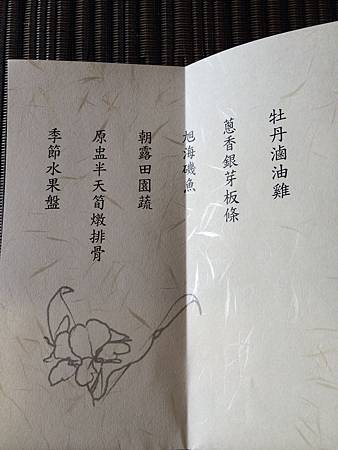 牡丹滷油雞
蔥香銀芽板條
旭海磯魚
朝露田園蔬
原盅半天筍燉排骨
季節水果盤